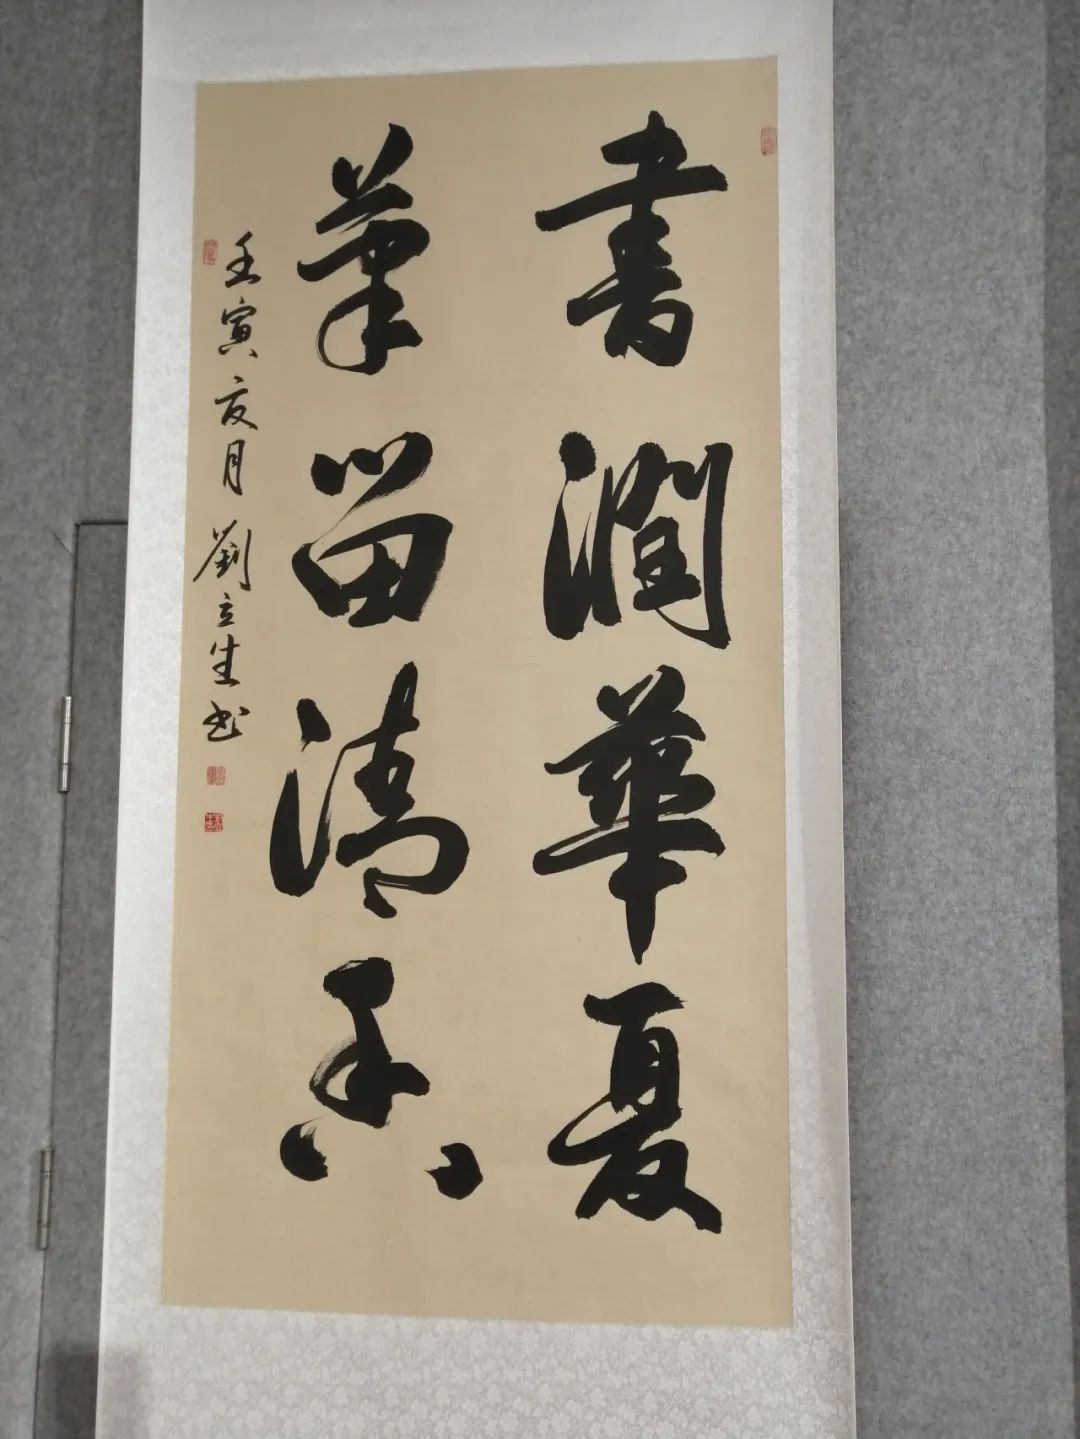 書潤華夏
筆留清香
壬寅夏月劉立生书